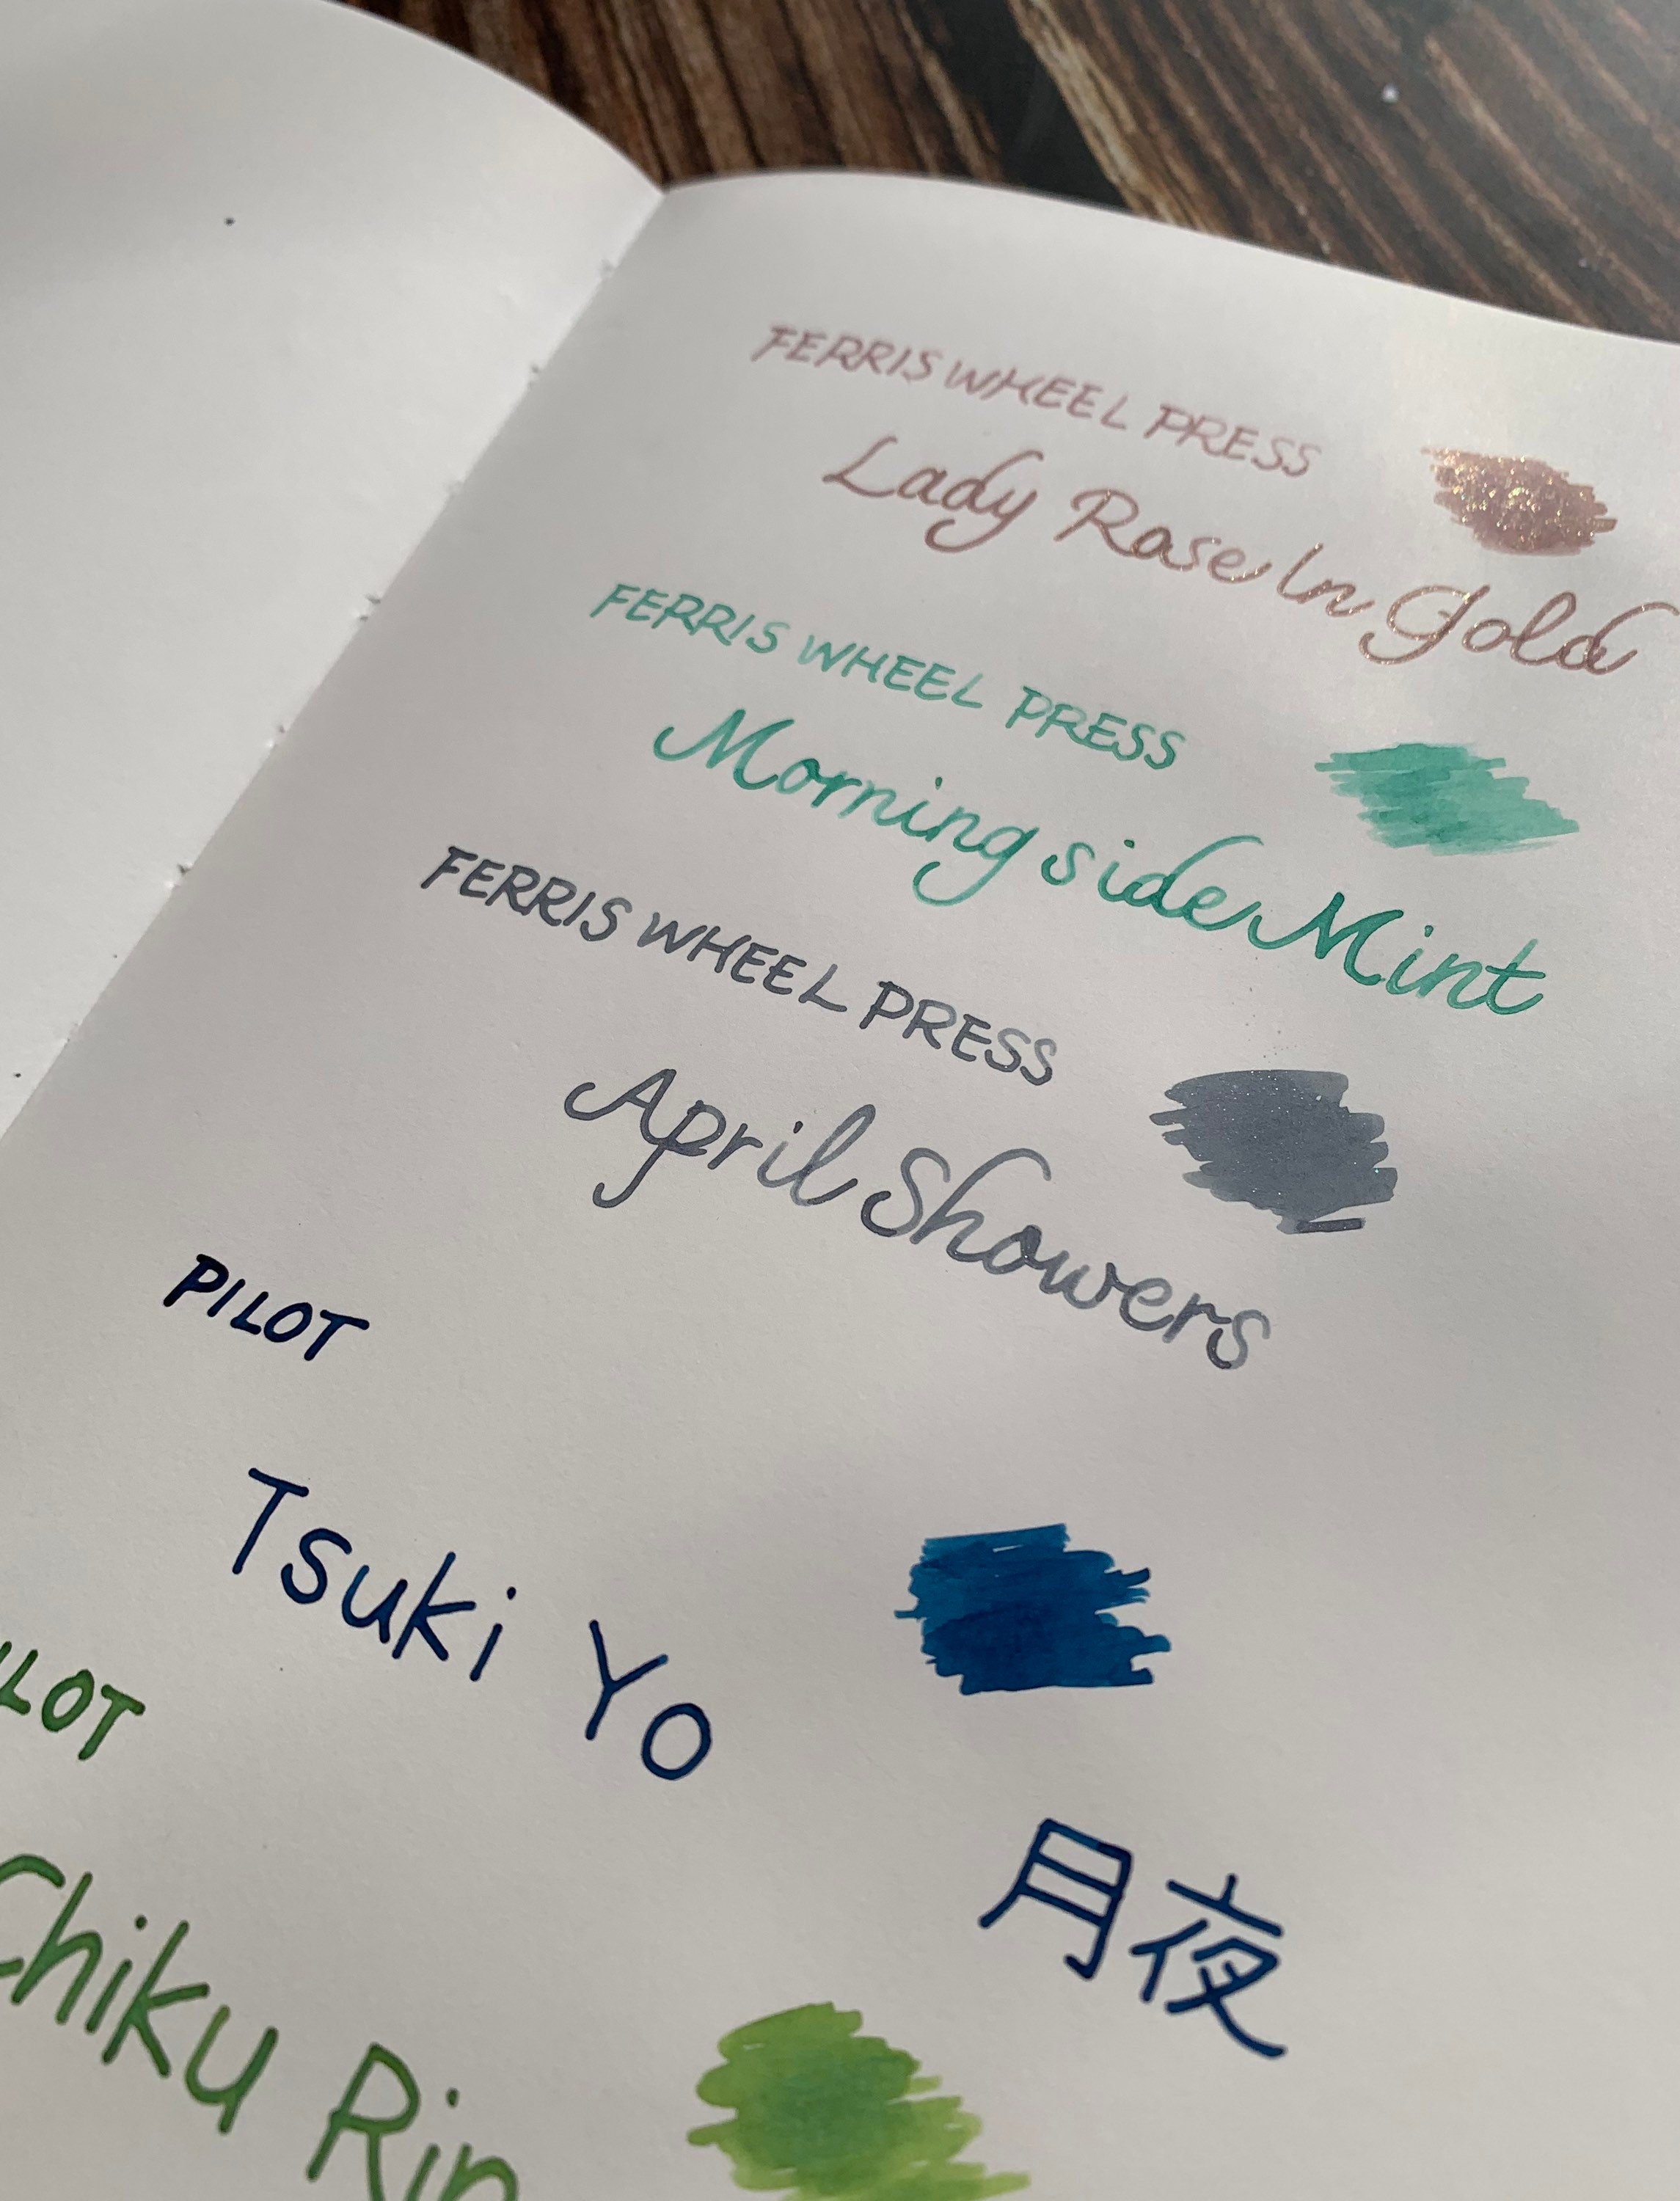 FERRIS WHEEL PRESS
Lady Rose In Gold
FERRIS WHEEL PRESS
Morningside Mint
FERRIS WHEEL PRESS
April Showers
PILOT
Tsuki Yo
月夜
LOT
Chiku Rin